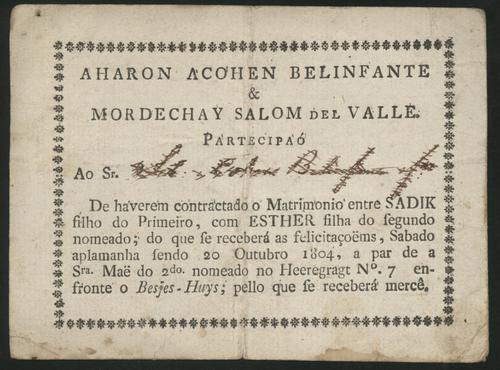 AHARON ACOHEN BELINFANTE
&
MORDECHAY SALOM DEL VALLE.
PARTECIPAÓ
Ao Sr.
De haverem contractado o Matrimonio entre SADIK
filho do Primeiro, com ESTHER filha do segundo
nomeado; do que se receberá as felicitaçoëms, Sabado
aplamanha sendo 20 Outubro 1804, a par de a
Sra. Maë do 2do. nomeado no Heeregragt No. 7 en-
fronte o Besjes-Huys; pello que se receberá mercê.